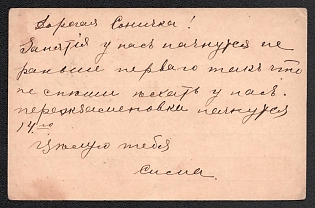 Дорогая Соничка!
Занятія у насъ начнутся не
раньше перваго такъ что
не спѣши ѣхать у насъ
переэкзаменовки начнутся
14го
Цѣлую тебя